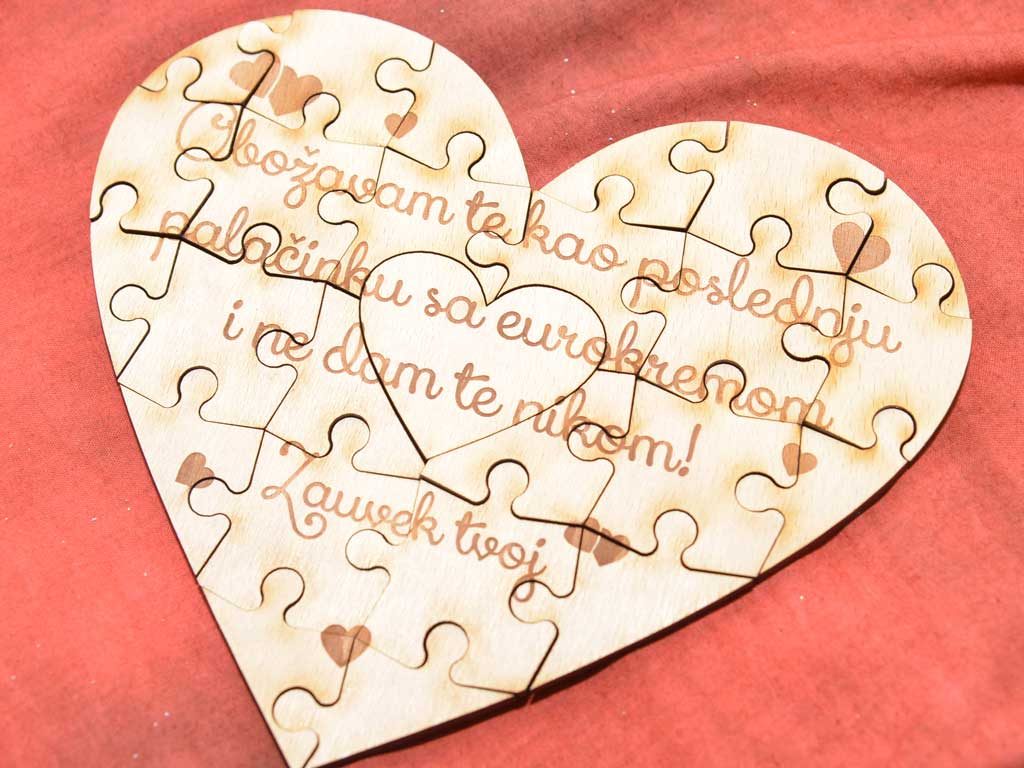 Obožavam te kao poslednju
palačinku sa eurokremom
i ne dam te nikom!
Zauvek tvoj